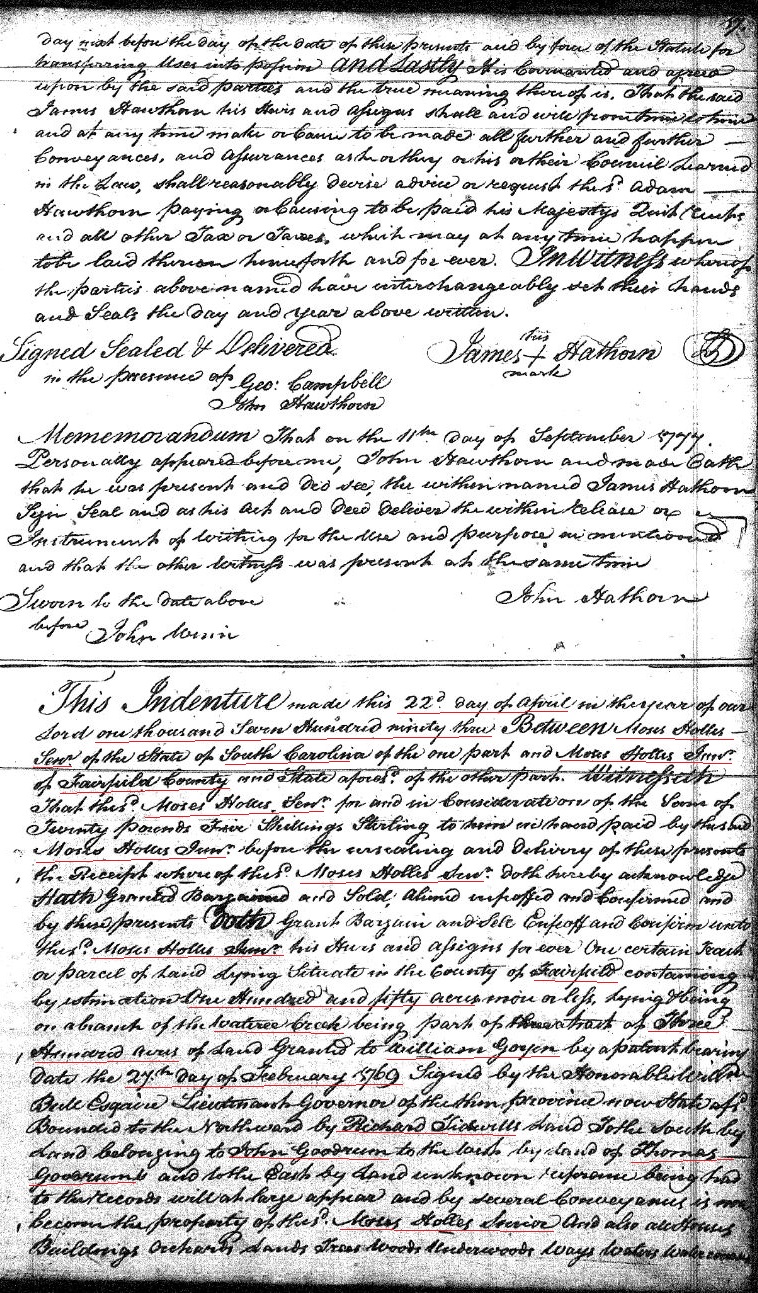 57.
day next before the day of the date of these presents and by force of the Statute for
transferring Uses into possion And Lastly It is Covenanted and agreed
upon by the said parties and the true meaning thereof is, That the said
James Hawthorn his Heirs and assigns shall and will from time to time
and at any time make or Cause to be made all further and further
Conveyances, and Assurances as he or they or his or their Council Learned
in the Law, shall reasonably devise advice or request the sd. Adam
Hawthorn paying or Causing to be paid his Majestys Quit Rents
and all other Tax or Taxes, which may at any time happen
to be laid thereon henceforth and for ever. In Witness whereof
the parties above named have interchangeably set their hands
and Seals the day and year above written.
Signed Sealed & Delivered
in the presence of
Geo: Campbell
John Hawthorn
James his + mark Hathorn
Mememorandum That on the 11th day of September 1777.
Personally appeared before me, John Hawthorn and made Oath
that he was present and Did see, the within named James Hathorn
Sign Seal and as his Act and Deed Deliver the within Release or
Instrument of writing for the Use and purpose in mentioned
and that the other Witness was present at the same time
Sworn to the date above
before John Winn
John Hathorn
This Indenture made this 22d. day of April in the year of our
Lord one thousand Seven Hundred ninety three Between Moses Holles
Senr. of the State of South Carolina of the one part and Moses Holles Junr.
of Fairfield County and State aforesd. of the other part. Witnesseth
That the sd. Moses Holles Senr. for and in Consideration of the Sum of
Twenty pounds Five Shillings Sterling to him in hand paid by the said
Moses Holles Junr. before the ensealing and delivery of these presents
the Receipt whereof the sd. Moses Holles Senr. doth hereby acknowledge
Hath Granted Bargained and Sold, aliened enfeoffed and Confirmed and
by these presents Doth Grant Bargain and Sell Enfeoff and Confirm unto
the sd. Moses Holles Junr. his Heirs and assigns for ever One certain Tract
or parcel of Land Lying Situate in the County of Fairfield containing
by estimation One Hundred and fifty acres more or less, lying & being
on a branch of the Wateree Creek being part of a tract of Three
Hundred acres of Land Granted to William Goyen by a patent bearing
date the 27.th day of February 1769 Signed by the Honorable William
Bull Esquire Lieutenant Governor of the then province now State afsd.
Bounded to the Northward by Richard Tidwills Land To the South by
Land belonging to John Goodrum to the West by Land of Thomas
Goodrums and to the East by Land unknown reference being had
to the records will at large appear and by several Conveyances is now
become the property of the sd. Moses Holles Senior And also all Houses
Buildings Orchards Lands Trees Woods Underwoods Ways Waters Water courses